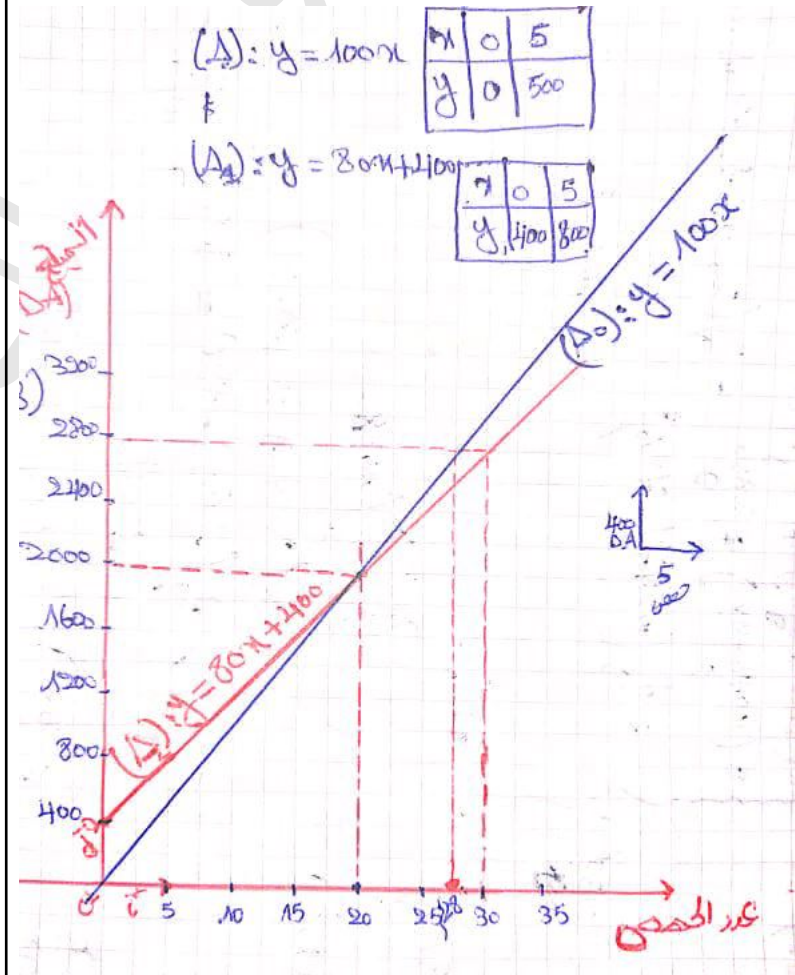 (Δ): y = 100x
x 0 5
y 0 500
(Δ1): y = 80x+400
x 0 5
y 400 800
(Δ0): y = 100x
3900
2800
2400
2000
1600
1200
800
400
(Δ1): y = 80x+400
400
DA
5
حصص
0 5 10 15 20 25 28 30 35
عدد الحصص